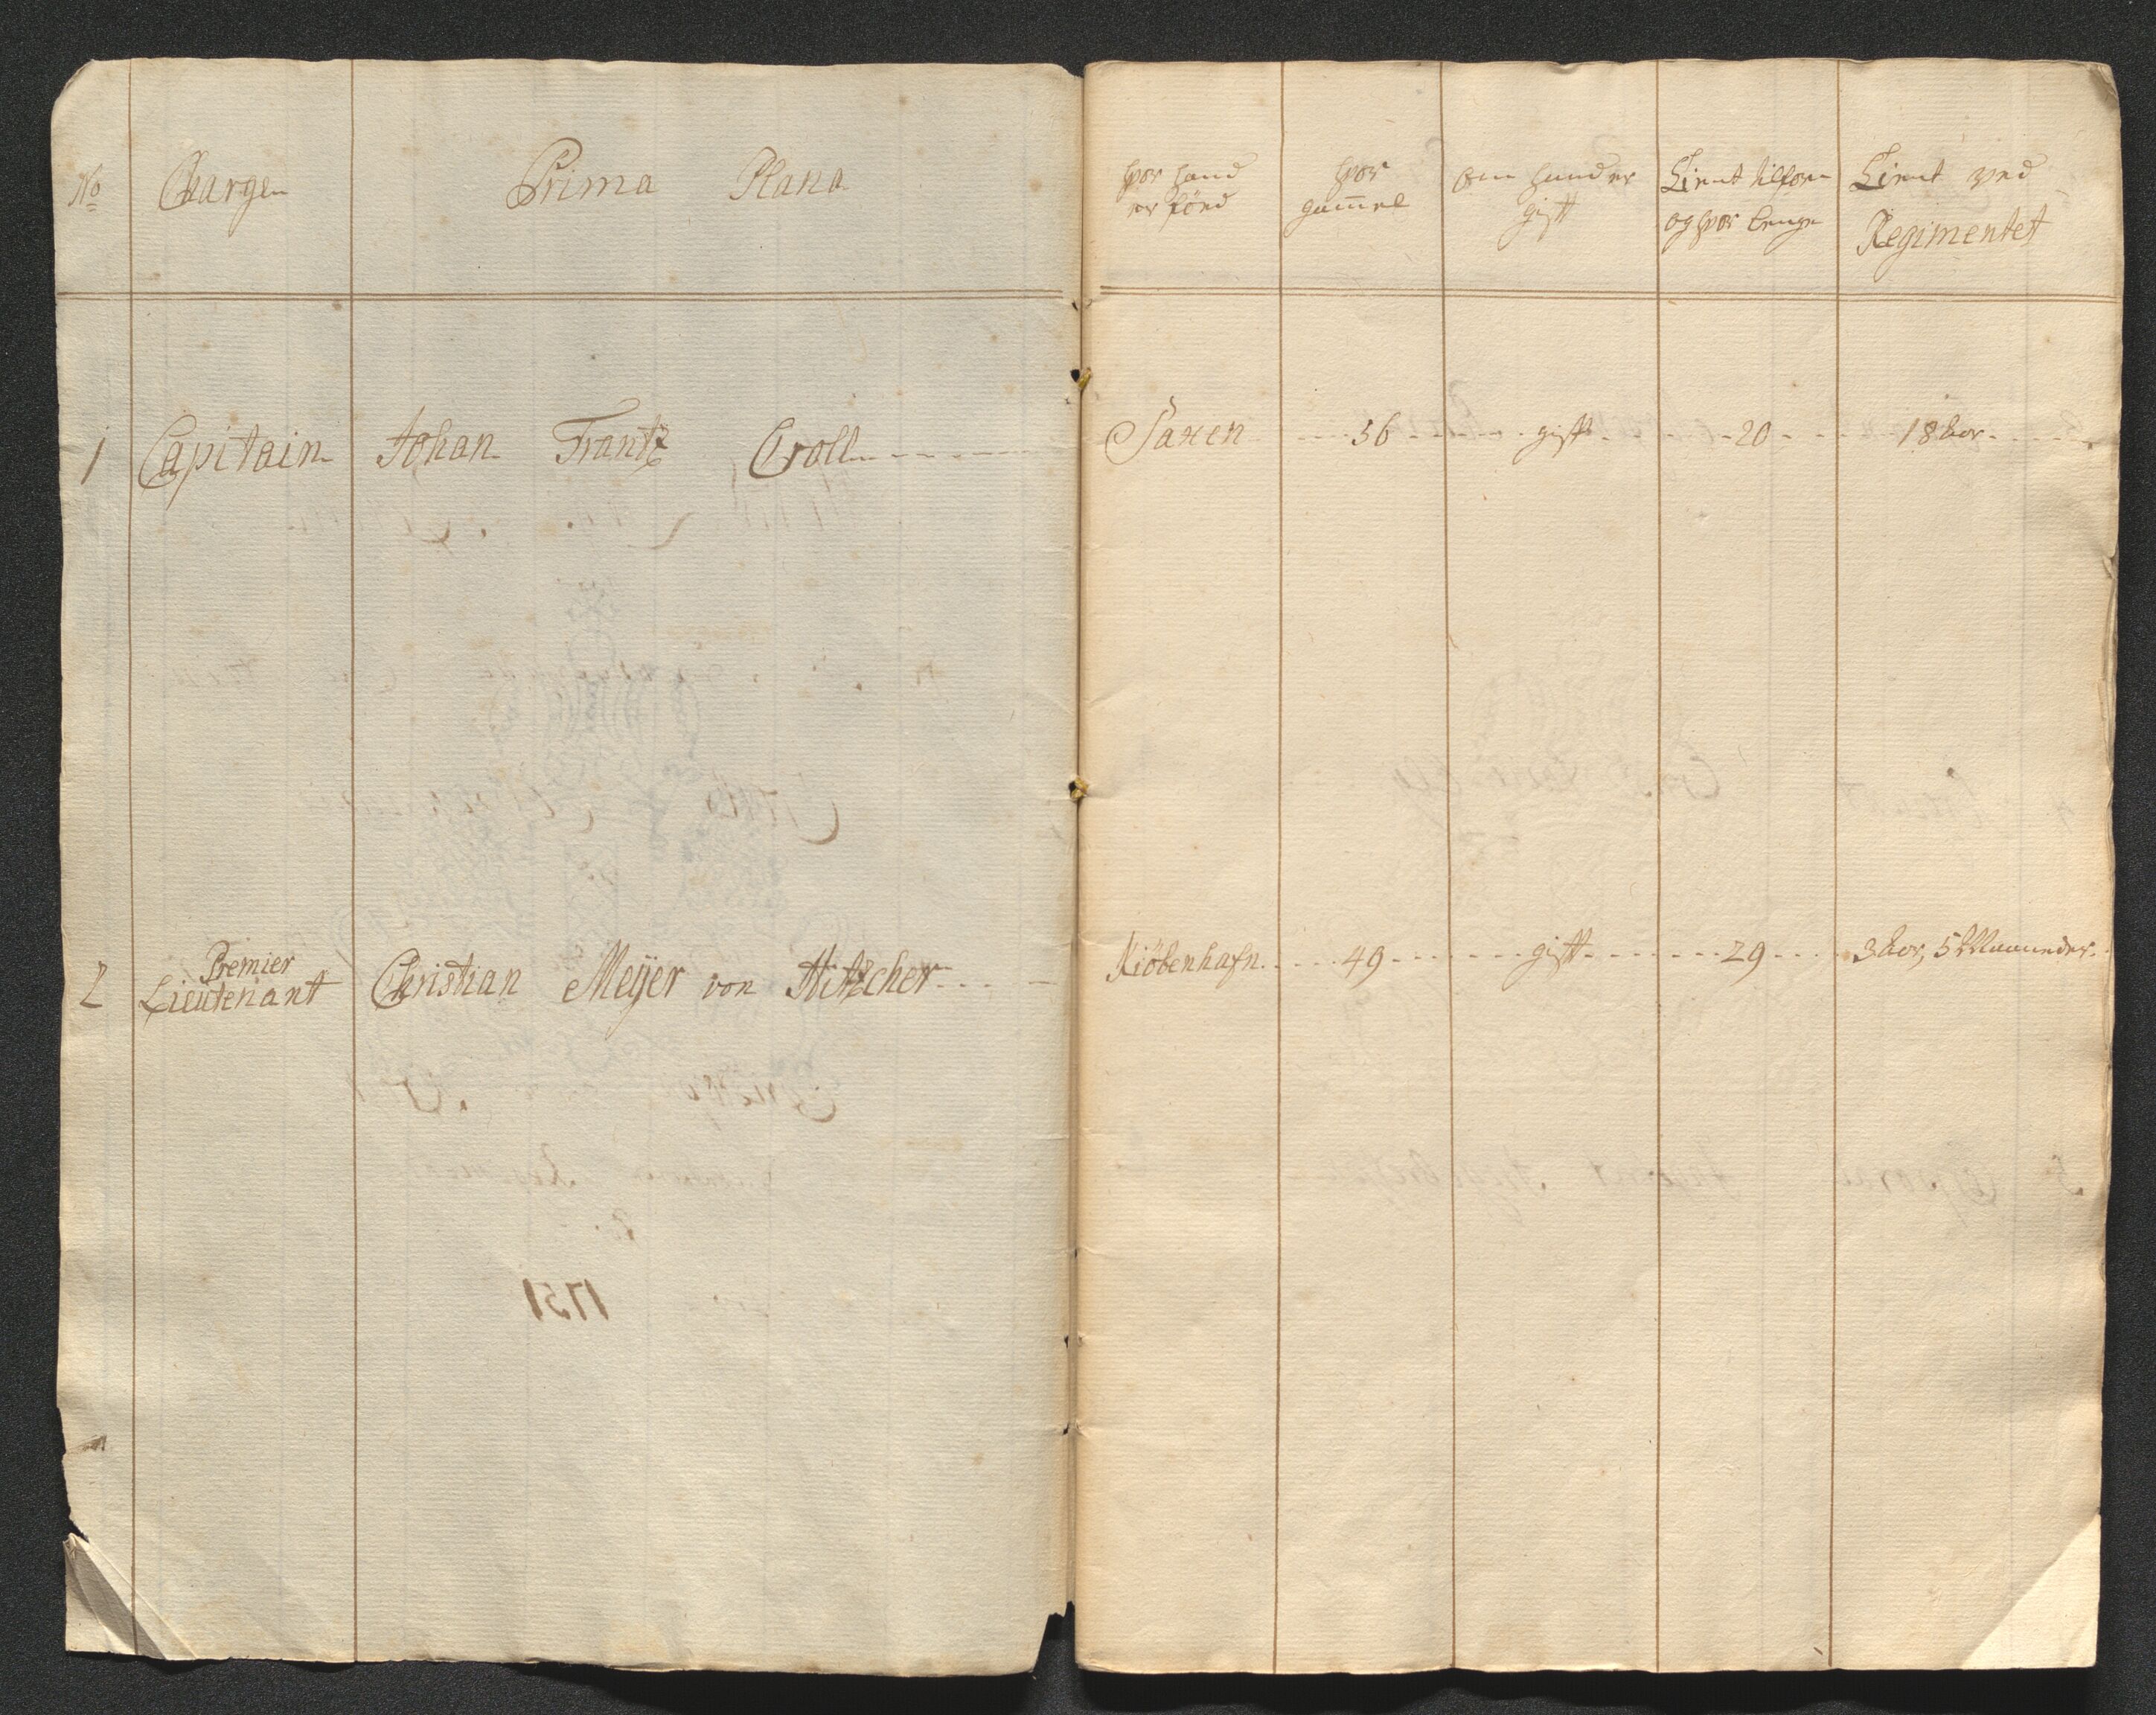 No Chargen Prima Plana hvor hand er föed hvor gam̄el om hand er gift Tient tilforn og hvor lenge Tient ved Regimentet
1 Capitain Johan Frantz Croll Saxen 56 gift 20 18 aar
2 Premier Lieutenant Christian Meÿer von Hitzcher Kiöbenhafn 49 gift 29 3 aar, 5 Maaneder
1751